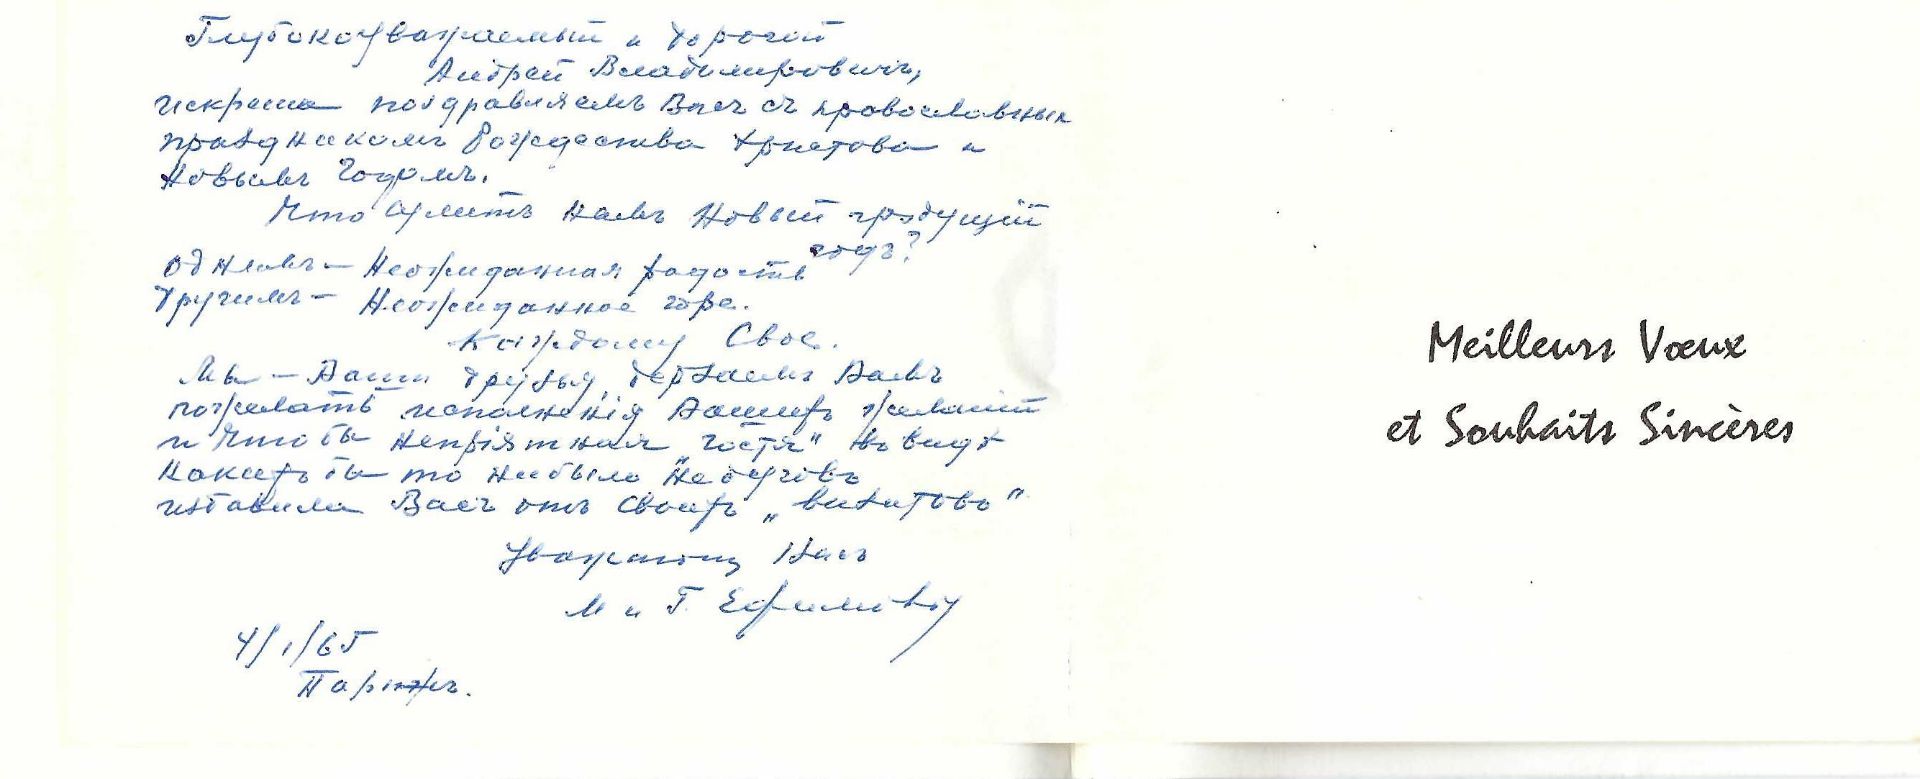 Глубокоуважаемый и дорогой
Андрей Владимировичъ,
искренне поздравляемъ Васъ съ православнымъ
праздникомъ Рождества Христова и
Новымъ Годомъ.
Что сулитъ намъ Новый грядущій
годъ?
Однимъ — Неожиданная радость
другимъ — Неожиданное горе.
Каждому Свое.
Мы — Ваши друзья, дерзаемъ Вамъ
пожелать исполненія Вашихъ желаний
и чтобы непріятная „гостя" въ видѣ
какихъ бы то нибыло недуговъ
избавила Васъ отъ своихъ „визитовъ"
Уважающіе Васъ
М и Г.
4/1/65
Парижъ.
Meilleurs Vœux
et Souhaits Sincères